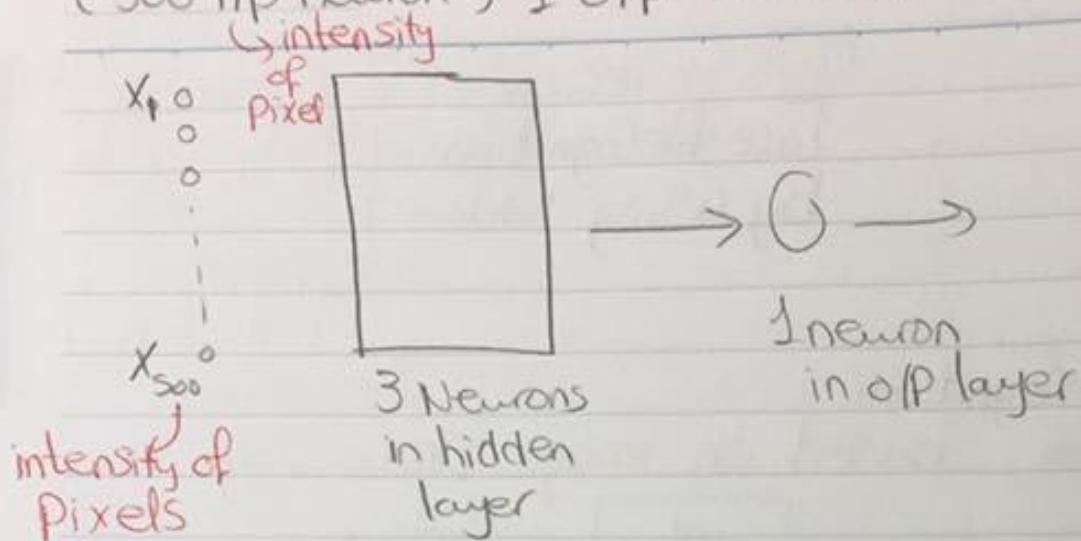 ↳ intensity
of
Pixel
X1
X500
intensity of
Pixels
3 Neurons
in hidden
layer
1 neuron
in o/p layer